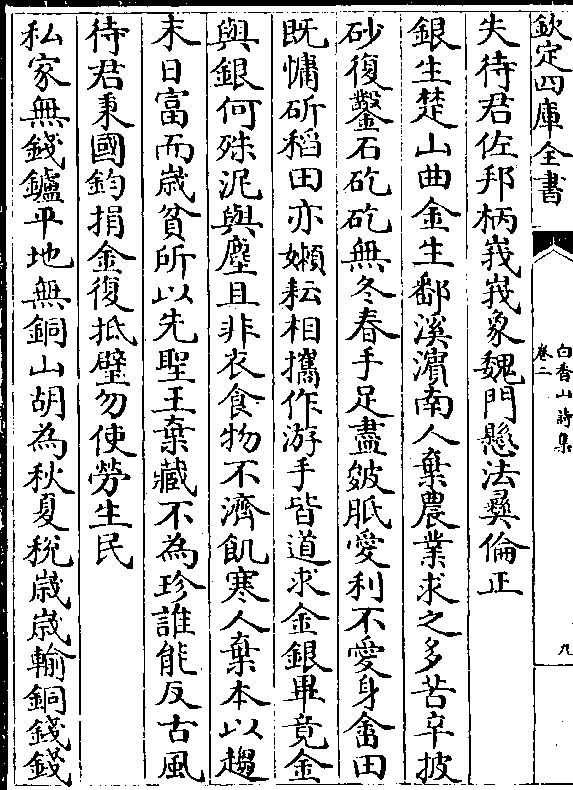 欽定四庫全書
白香山詩集
卷二
九
失待君佐邦柄峩峩象魏門懸法彞倫正
銀生楚山曲金生鄱溪濵南人棄農業求之多苦辛披
砂復鑿石矻矻無冬春手足盡皴胝愛利不愛身畬田
既慵斫稻田亦嬾耘相攜作游手皆道求金銀畢竟金
與銀何殊泥與塵且非衣食物不濟飢寒人棄本以趨
末日富而歲貧所以先聖王棄藏不為珍誰能反古風
待君秉國鈞捐金復抵璧勿使勞生民
私家無錢鑪平地無銅山胡為秋夏稅歲歲輸銅錢錢